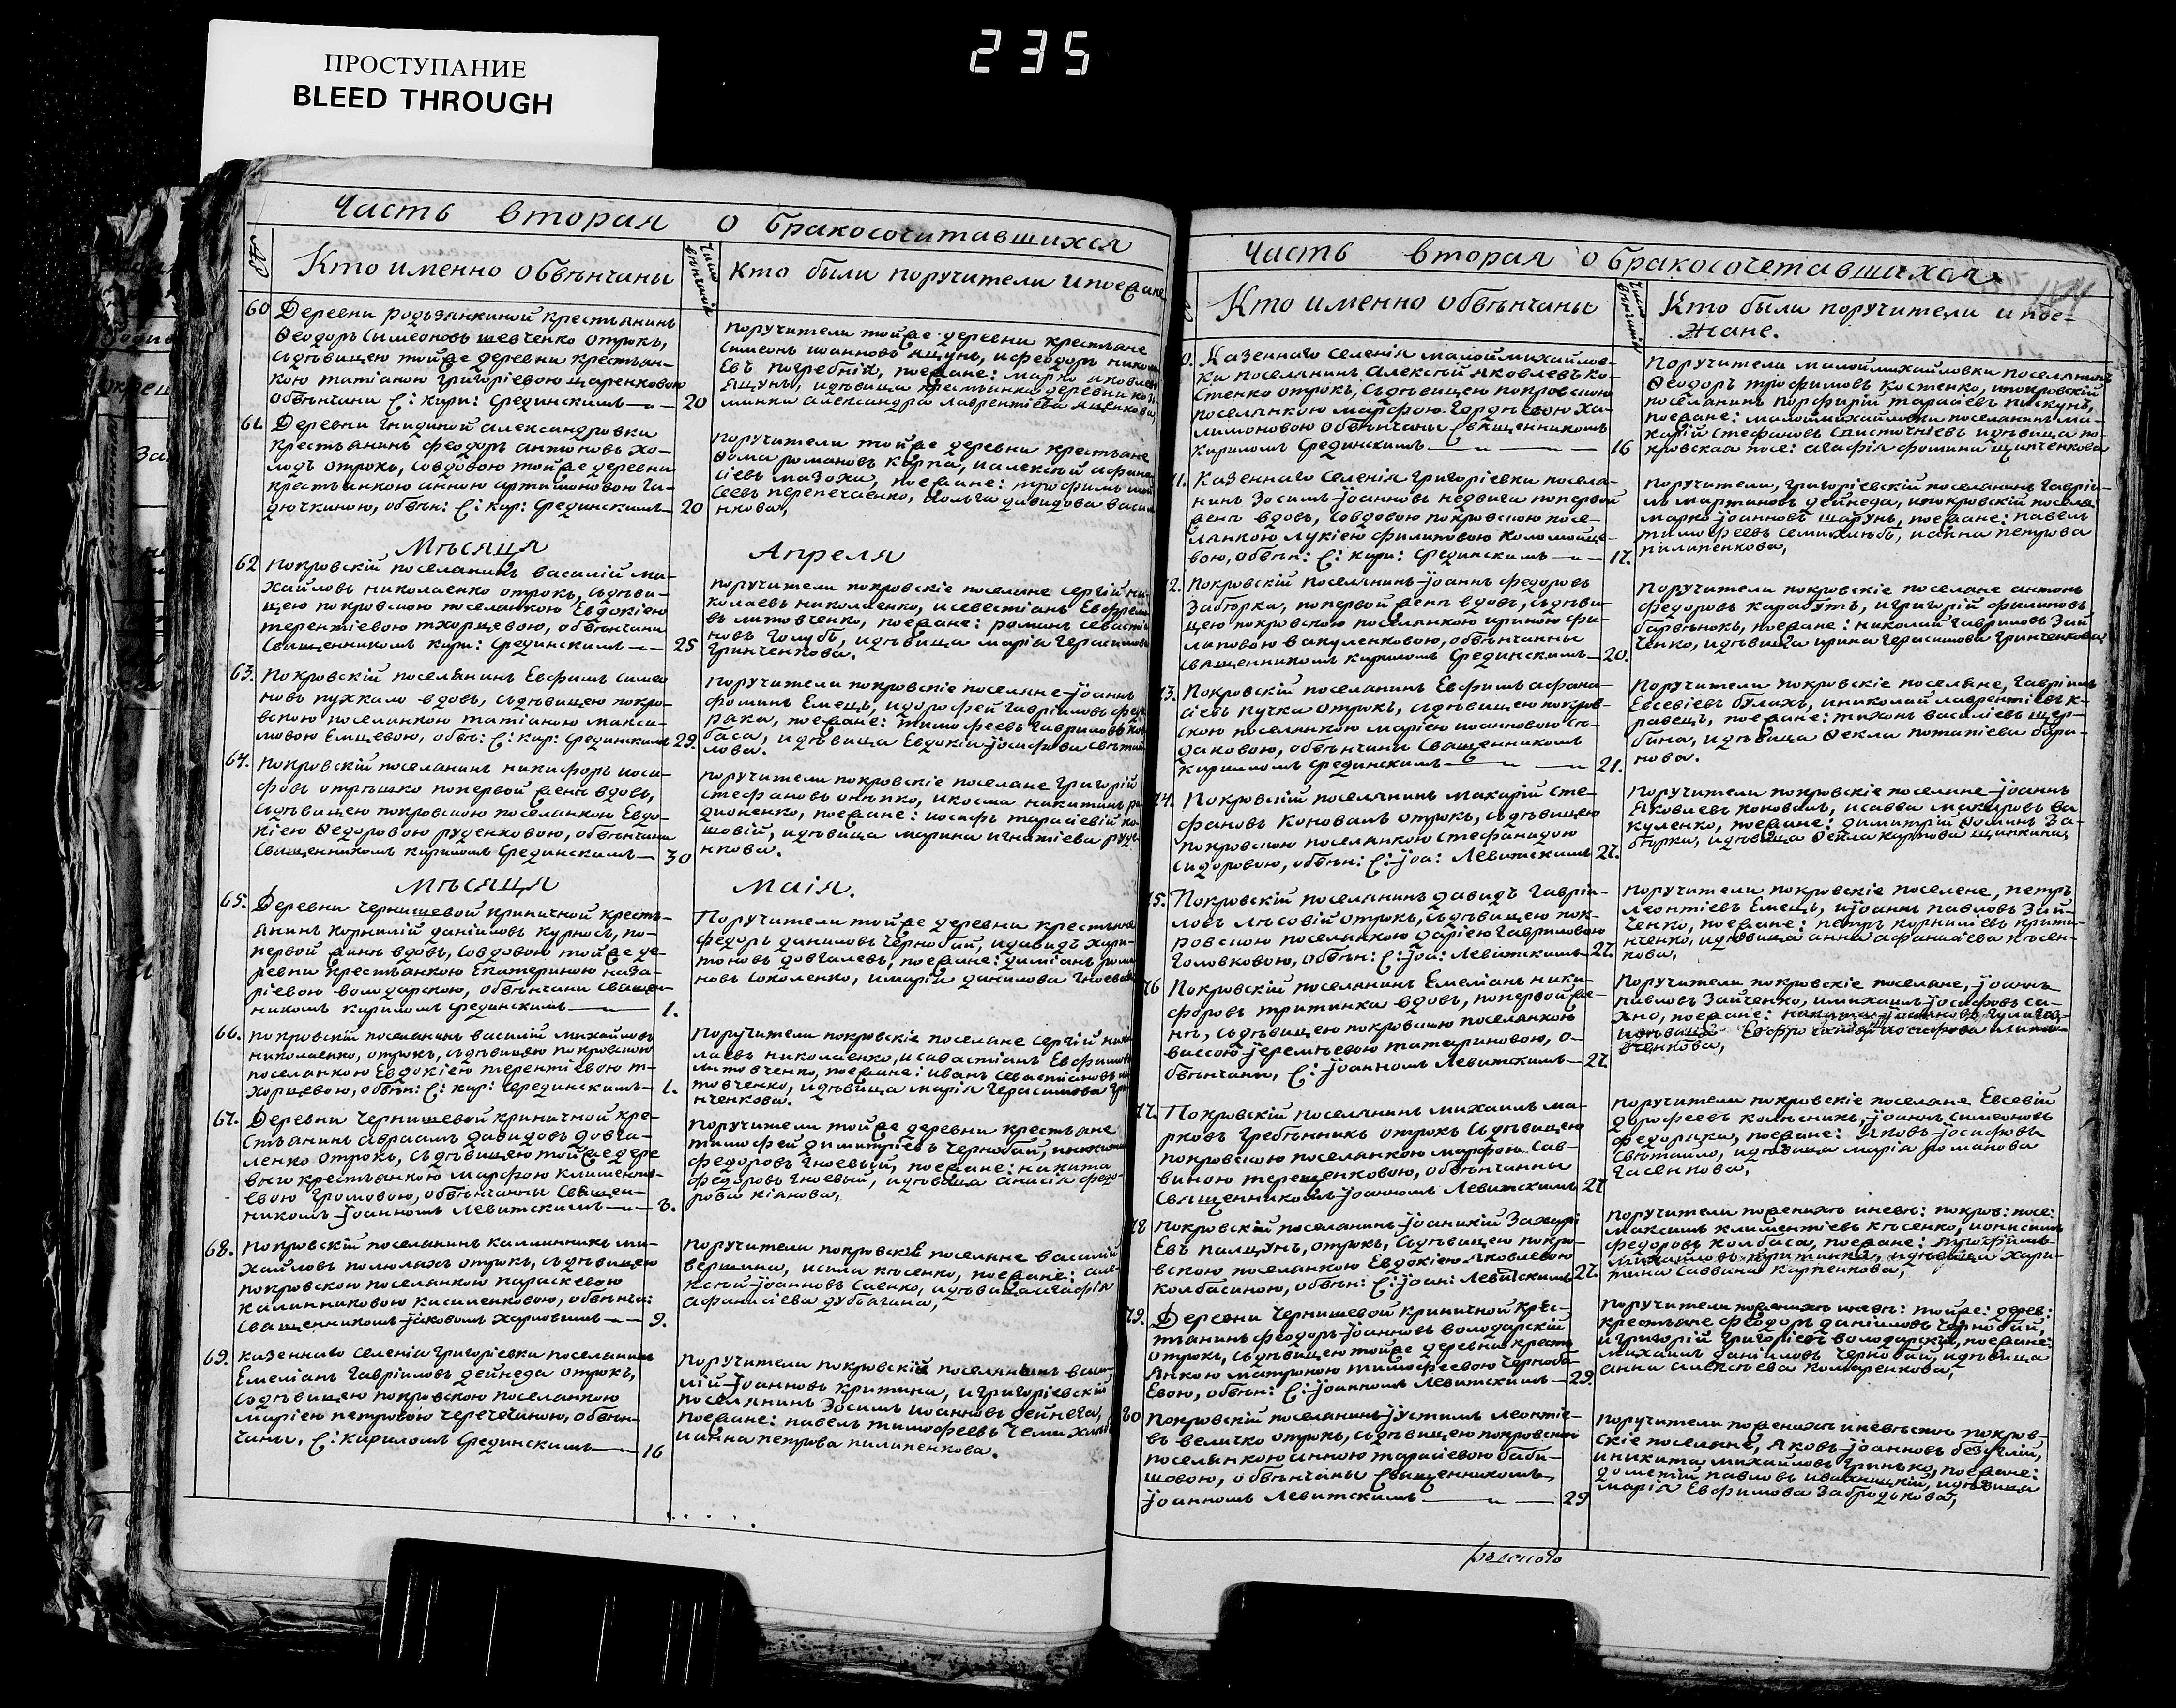 235
ПРОСТУПАНИЕ
BLEED THROUGH
Часть вторая о бракосочитавшихся
№
Кто именно обвѣнчаны
Число вѣнчанія
Кто были поручители и поезжане
60 Деревни родьзянкиной крестьянинъ
Ѳеодоръ Симеоновъ шевченко отрокъ,
съдѣвицею тойже деревни крестьян-
кою татіаною григоріевою
обвѣнчани С: кири: Срединскимъ 20
поручители тойже деревни крестьяне
Симеонъ иоанновъ ящунъ, и феодоръ
евъ погребній, поезжане: марко
ящунъ, идѣвица крестьянка деревни
александра лаврентіева яценкова,
61. Деревни александровки
крестьянинъ феодоръ антоновъ хо-
лодъ отрокъ, совдовою тойже деревни
крестьянкою анною артимоновою га-
дючкиною, обвѣн: С: кир: Срединскимъ 20
поручители тойже деревни крестьяне
Ѳома романовъ карпа, иалексій афана
сіевъ мазоха, поезжане: трофимъ
сеевъ перепечаенко, иольга давидова васил
нкова,
Мѣсяця Апреля
62 покровскій поселанинъ василій ми-
хайловъ николаенко отрокъ, съдѣви-
цею покровскою поселанкою Евдокіею
терентіевою тхорцевою, обвѣнчани
Священникомъ кири: Срединскимъ 25
поручители покровскіе поселяне сергій ни-
колаевъ николаенко, исевестіанъ
въ литовченко, поезжане: романъ севасті
новъ голубъ, идѣвица маріа Герасимова
Гринченкова.
63. Покровскій поселянинъ Евфимъ симео
новъ пужкало вдовъ, съдѣвицею покро-
вскою поселанкою татіаною макси-
мовою Емцевою, обвѣ: С: кир: Срединскимъ 29.
поручители покровскіе поселяне іоаннъ
фоминъ Емецъ, идорофей гавріиловъ
рака, поезжане: тимофеевъ гавриловъ кол
баса, идѣвица Евдокіа іосифова
лова.
64. покровскій поселанинъ никифоръ иоси-
фовъ отрѣшко попервой женѣ вдовъ,
съдѣвицею покровскою поселанкою Евдо-
кіею Ѳедоровою руденковою, обвѣнчани
Священникомъ кириломъ Срединскимъ 30
поручители покровскіе поселане григорій
стефановъ онѣпко, икосма никитинъ ра
дионенко, поезжане: иосифъ тарасіевій ко-
шовій, идѣвица марина игнатіева руде
нкова.
Мѣсяця Маія.
65. Деревни чернишевой криничной кресть-
янинъ корнилій даніиловъ курносъ, по-
первой жинѣ вдовъ, совдовою тойже де-
ревни крестьянкою Екатериною наза-
ріевою володарскою, обвѣнчани священ-
никомъ кириломъ Срединскимъ 1.
Поручители тойже деревни крестьяне
федоръ даниловъ чорнобай, идавидъ хари-
тоновъ довгалевъ, поезжане: даміанъ рома
новъ соколенко, имарій данилова гноева
66. покровскій поселанинъ василій михайловъ
николаенко, отрокъ, съдѣвицею покровскою
поселанкою Евдокіею терентіевою т-
хорцевою, обвѣн: С: кир: Срединскимъ 1.
поручители покровскіе поселане сергій нико
лаевъ николаенко, исавастіанъ Евфимовъ
литовченко, поезжане: иванъ севастіановъ ли
товченко, идѣвица марія герасимова гри
нченкова.
67. Деревни чернишевой криничной кре-
стьянинъ авраамъ давидовъ довга-
ленко отрокъ, съдѣвицею тойже дере
вни крестьянкою марфою климентіе-
евою громовою, обвѣнчанни Священ-
никомъ іоанномъ Левитскимъ 8.
поручители тойже деревни крестьяне
тимофей димитріевъ чернобай,
федоровъ гноевый, поезжане: никита
федоровъ гноевый, идѣвица анисія федо-
рова кіанова,
68. покровскій поселанинъ каллинникъ ми-
хайловъ полюляхъ отрокъ, съдѣвицею
покровскою поселанкою параскевою
калинниковою кисиленковою, обвѣнча:
Священникомъ іаковомъ 9.
поручители покровскіе поселяне василій
вершина, исила кѣсенко, поезжане: але-
ксій іоанновъ саенко, идѣвица агафія
афанасіева дубягина,
69. казеннаго селенія григоріевки поселанинъ
Емеліанъ гавріиловъ дейнеда отрокъ,
содѣвицею покровскою поселанкою
маріею петровою черечечиною, обвѣн-
чаны. С: кириломъ Срединскимъ 16
поручители покровскій поселянинъ васи-
лій іоанновъ критина, игригоріевскій
поселянинъ Зосимъ иоанновъ дейнега,
поезжане: павелъ тимофеевъ семихлѣбъ
ианна петрова пилипенкова.
Часть вторая о бракосочетавшихся.
104
Кто именно обвѣнчаны
Число вѣнчанія
Кто были поручители и пое-
зжане.
0. Казеннаго селенія малоймихайлов-
ки поселянинъ алексій яковлевъ ко-
стенко отрокъ, съдѣвицею покровскою
поселянкою марфою гордѣевою ха-
лимоновою обвѣнчаны священникомъ
кириломъ Срединскимъ 16
Поручители малоймихайловки поселянинъ
Ѳеодоръ трофимовъ костенко, ипокровскій
поселанинъ порфирій тарасіевъ пискунъ,
поезжане: малоймихайловки поселанинъ ма-
карій стефановъ идѣвица по-
кровская посе: агафія фомина щипченкова
11. казеннаго селенія григоріевки посела-
нинъ Зосимъ іоанновъ недвига попервой
женѣ вдовъ, совдовою покровскою посе-
ланкою лукіею филиповою коломійце-
вою, обвѣн: С: кири: Срединскимъ 17.
поручители, григоріевскій поселанинъ гаврій-
лъ мартиновъ дейнеда, ипокровскій посела-
марко іоанновъ шарунъ, поезжане: павелъ
тимофеевъ семихлѣбъ, ианна петрова
пилипенкова,
2. покровскій поселянинъ іоаннъ федоровъ
Забѣрка, попервой женѣ вдовъ, съдѣви-
цею покровскою поселянкою ириною фи-
липовою вакуленковою, обвѣнчанны
священникомъ кириломъ Срединскимъ 20.
поручители покровскіе поселане антонъ
федоровъ карабутъ, игригорій филиповъ
барвѣнокъ, поезжане: николай гавриловъ Зай
ченко, идѣвица ирина герасимова гринченкова
73. Покровскій поселанинъ Евфимъ афана-
сіевъ пучка отрокъ, съдѣвицею покров-
скою поселанкою маріею иоанновою си-
даковою, обвѣнчани Священникомъ
кирилломъ Срединскимъ 21.
поручители покровскіе поселяне, гавріилъ
Евсевіевъ булахъ, иниколай лаврентіевъ к-
равецъ, поезжане: тихонъ василіевъ щер-
бина, идѣвица Ѳекла потапіева бара-
нова.
74. Покровскій поселянинъ макарій сте-
фановъ коновалъ отрокъ, съдѣвицею
покровскою поселанкою стефанидою
сидоровою, обвѣн: С: іоа: Левитскимъ 27.
поручители покровскіе поселяне іоаннъ
яковлевъ коновалъ, исавва макаровъ ва
куленко, поезжане: димитрій Ѳоминъ За-
бѣрка, идѣвица Ѳекла карпова щипкина
75. Покровскій поселанинъ давидъ гавріи-
ловъ лѣсовій отрокъ, съдѣвицею пок-
ровскою поселанкою даріею гавриловою
головковою, обвѣн: С: іоа: Левитскимъ 27.
поручители покровскіе поселене, петръ
леонтіевъ Емецъ, иіоаннъ павловъ Зай-
ченко, поезжане: петръ корниліевъ крити-
нченко, идѣвица анна афанасіева кѣсен-
кова,
76 Покровскій поселанинъ Емеліанъ ники-
форовъ притинка вдовъ, попервой же-
нѣ, съдѣвицею покровскою поселанкою
вассою іеремѣевою татариновою, о-
бвѣнчаны, С: іоанномъ Левитскимъ 27.
поручители покровскіе поселане, іоаннъ
павловъ Зайченко, имихаилъ іосифовъ са-
хно, поезжане: никита
идѣвица иосифова
ченкова,
77. Покровскій поселанинъ михаилъ ма-
рковъ гребѣнникъ отрокъ съдѣвицею
покровскою поселанкою марфою сав-
виною терещенковою, обвѣнчанны
Священникомъ іоанномъ Левитскимъ 27
поручители покровскіе поселане Евсевій
дорофеевъ колѣсникъ, іоаннъ симеоновъ
федоряка, поезжане: яковъ іосифовъ
свѣтайло, идѣвица марія романова
гасенкова,
78 покровскій поселанинъ іоаникій Захарі
евъ палцунъ, отрокъ, съдѣвицею покро-
вскою поселанкою Евдокіею яковлевою
колбасиною, обвѣн: С: іоан: Левитскимъ 27.
поручители поженихѣ иневѣ: покров: посе:
максимъ климентіевъ кѣсенко, ионисимъ
федоровъ колбаса, поезжане: трофимъ
михайловъ притинка, идѣвица хари-
тина саввина карпенкова,
79. Деревни чернишевой криничной крес-
тьянинъ феодоръ іоанновъ володарскій
отрокъ, съдѣвицею тойже деревни кресть
янкою матроною тимофеевою чернобо-
евою, обвѣн: С: іоанномъ Левитскимъ 29.
поручители поженихѣ иневѣ: тойже: дерев:
крестьяне феодоръ даніиловъ чернобай,
игригорій григоріевъ володарскій, поезжане:
михаилъ даніиловъ чернобай, идѣвица
анна алексѣева понаренкова,
80 покровскій поселанинъ іустимъ леонтіе-
въ величко отрокъ, съдѣвицею покровскою
поселанкою анною тарасіевою баби-
шовою, обвѣнчаны священникомъ
іоанномъ Левитскимъ 29
поручители поженихѣ иневѣстѣ покров-
скіе поселане, яковъ іоанновъ безуглій,
иникита михайловъ гринько, поезжане:
дометій павловъ идѣвица
марія Евфимова Забродькова,